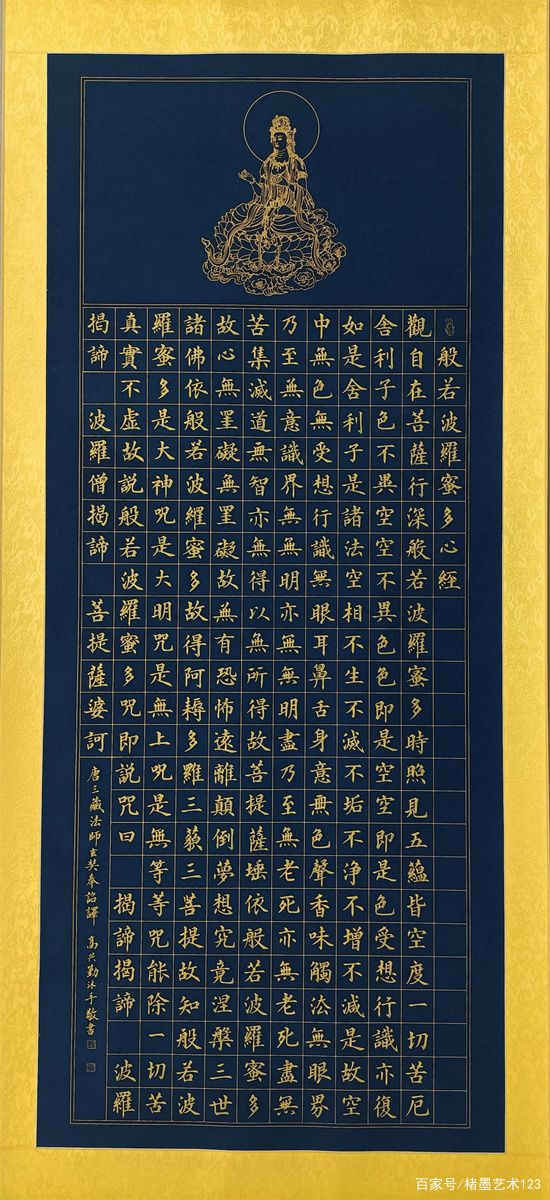 般若波羅蜜多心經
觀自在菩薩行深般若波羅蜜多時照見五蘊皆空度一切苦厄
舍利子色不異空空不異色色即是空空即是色受想行識亦復
如是舍利子是諸法空相不生不滅不垢不净不增不減是故空
中無色無受想行識無眼耳鼻舌身意無色聲香味觸法無眼界
乃至無意識界無無明亦無無明盡乃至無老死亦無老死盡無
苦集滅道無智亦無得以無所得故菩提薩埵依般若波羅蜜多
故心無罣礙無罣礙故無有恐怖遠離顛倒夢想究竟涅槃三世
諸佛依般若波羅蜜多故得阿耨多羅三藐三菩提故知般若波
羅蜜多是大神咒是大明咒是無上咒是無等等咒能除一切苦
真實不虛故説般若波羅蜜多咒即説咒曰 揭諦揭諦 波羅
揭諦 波羅僧揭諦 菩提薩婆訶
唐三藏法師玄奘奉詔譯 高兴勤沐手敬書
百家号/楮墨艺术123